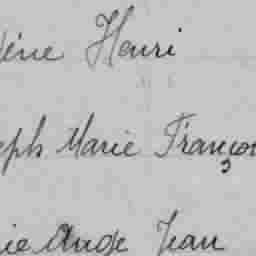 ène Henri
eph Marie Françoi
ie Ange Jean